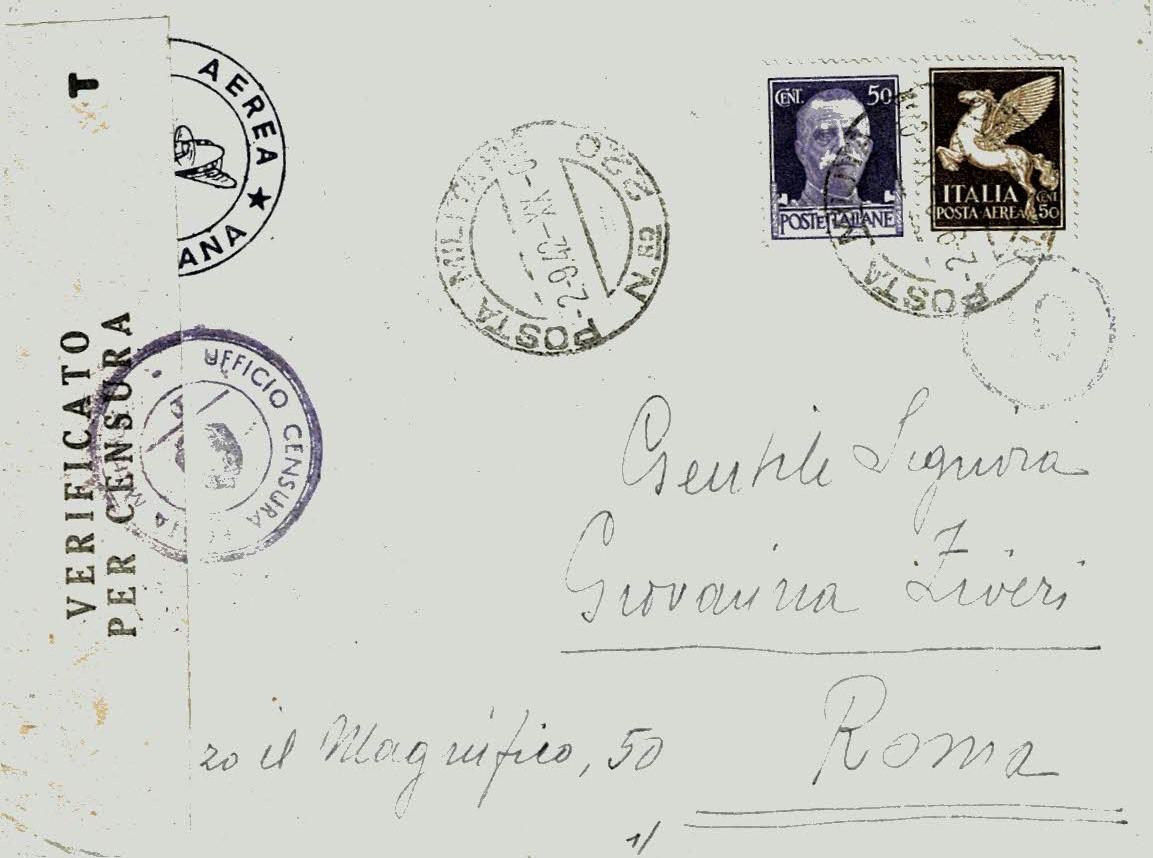 T
AEREA ★
ANA
VERIFICATO
PER CENSURA
UFFICIO CENSURA
POSTA MILITARE N. 220
-2.9.42-XX
CENT. 50
POSTE ITALIANE
ITALIA
POSTA AEREA CENT 50
POSTA
-2.9
10
Gentile Signora
Giovanna Ziveri
zo il Magnifico, 50
Roma
1/